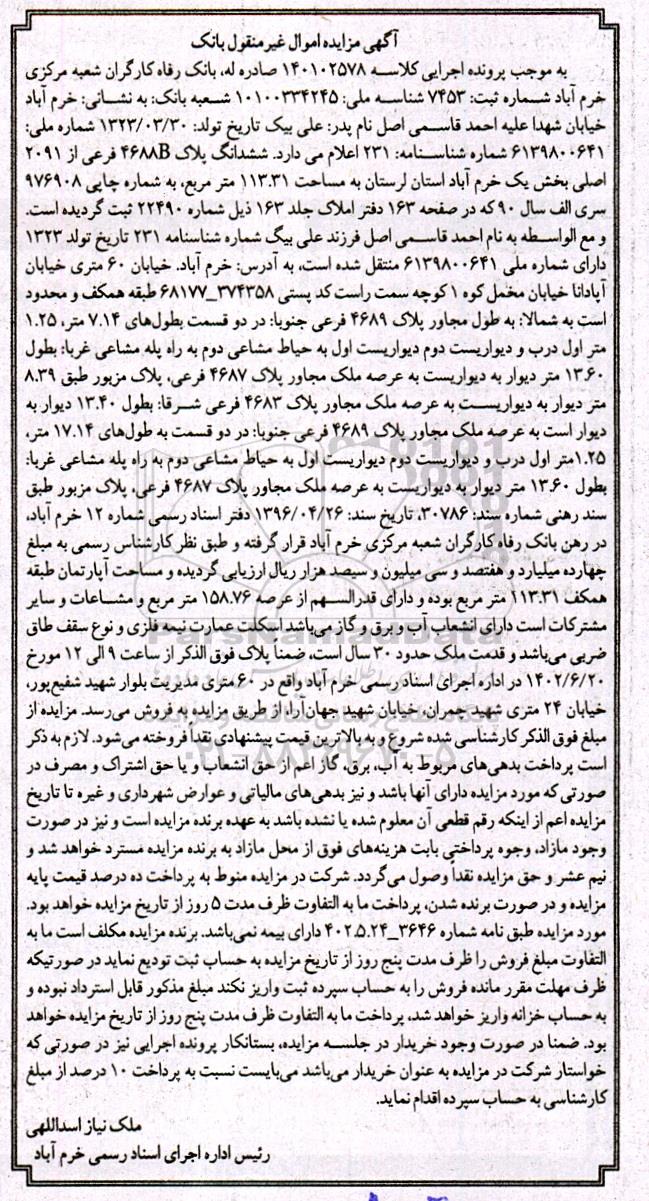 آگهی مزایده اموال غیر منقول بانک
به موجب پرونده اجرایی کلاسه ۱۴۰۱۰۲۵۷۸ صادره له، بانک رفاه کارگران شعبه مرکزی
خرم آباد شماره ثبت: ۷۴۵۳ شناسه ملی: ۱۰۱۰۰۳۳۴۲۴۵ شعبه بانک: به نشانی: خرم آباد
خیابان شهدا علیه احمد قاسمی اصل نام پدر: علی بیک تاریخ تولد: ۱۳۲۳/۰۳/۳۰ شماره ملی:
۶۱۳۹۸۰۰۶۴۱ شماره شناسنامه: ۲۳۱ اعلام می دارد. ششدانگ پلاک ۴۶۸۸B فرعی از ۲۰۹۱
اصلی بخش یک خرم آباد استان لرستان به مساحت ۱۱۳.۳۱ متر مربع، به شماره چاپی ۹۷۶۹۰۸
سری الف سال ۹۰ که در صفحه ۱۶۳ دفتر املاک جلد ۱۶۳ ذیل شماره ۲۲۴۹۰ ثبت گردیده است.
و مع الواسطه به نام احمد قاسمی اصل فرزند علی بیگ شماره شناسنامه ۲۳۱ تاریخ تولد ۱۳۲۳
دارای شماره ملی ۶۱۳۹۸۰۰۶۴۱ منتقل شده است، به آدرس: خرم آباد. خیابان ۶۰ متری خیابان
آپادانا خیابان مخمل کوه ۱ کوچه سمت راست کد پستی ۳۷۴۳۵۸_۶۸۱۷۷ طبقه همکف و محدود
است به شمالا: به طول مجاور پلاک ۴۶۸۹ فرعی جنوبا: در دو قسمت بطول‌های ۷.۱۴ متر، ۱.۲۵
متر اول درب و دیواریست دوم دیواریست اول به حیاط مشاعی دوم به راه پله مشاعی غربا: بطول
۱۳.۶۰ متر دیوار به دیواریست به عرصه ملک مجاور پلاک ۴۶۸۷ فرعی، پلاک مزبور طبق ۸.۳۹
متر دیوار به دیواریست به عرصه ملک مجاور پلاک ۴۶۸۳ فرعی شرقا: بطول ۱۳.۴۰ دیوار به
دیوار است به عرصه ملک مجاور پلاک ۴۶۸۹ فرعی جنوبا: در دو قسمت به طول‌های ۱۷.۱۴ متر،
۱.۲۵متر اول درب و دیواریست دوم دیواریست اول به حیاط مشاعی دوم به راه پله مشاعی غربا:
بطول ۱۳.۶۰ متر دیوار به دیواریست به عرصه ملک مجاور پلاک ۴۶۸۷ فرعی، پلاک مزبور طبق
سند رهنی شماره سند: ۳۰۷۸۶، تاریخ سند: ۱۳۹۶/۰۴/۲۶ دفتر اسناد رسمی شماره ۱۲ خرم آباد،
در رهن بانک رفاه کارگران شعبه مرکزی خرم آباد قرار گرفته و طبق نظر کارشناس رسمی به مبلغ
چهارده میلیارد و هفتصد و سی میلیون و سیصد هزار ریال ارزیابی گردیده و مساحت آپارتمان طبقه
همکف ۱۱۳.۳۱ متر مربع بوده و دارای قدرالسهم از عرصه ۱۵۸.۷۶ متر مربع و مشاعات و سایر
مشترکات است دارای انشعاب آب و برق و گاز می‌باشد اسکلت عمارت نیمه فلزی و نوع سقف طاق
ضربی می‌باشد و قدمت ملک حدود ۳۰ سال است، ضمناً پلاک فوق الذکر از ساعت ۹ الی ۱۲ مورخ
۱۴۰۲/۶/۲۰ در اداره اجرای اسناد رسمی خرم آباد واقع در ۶۰ متری مدیریت بلوار شهید شفیع‌پور،
خیابان ۲۴ متری شهید چمران، خیابان شهید جهان‌آرا، از طریق مزایده به فروش می‌رسد. مزایده از
مبلغ فوق الذکر کارشناسی شده شروع و به بالاترین قیمت پیشنهادی نقداً فروخته می‌شود. لازم به ذکر
است پرداخت بدهی‌های مربوط به آب، برق، گاز اعم از حق انشعاب و یا حق اشتراک و مصرف در
صورتی که مورد مزایده دارای آنها باشد و نیز بدهی‌های مالیاتی و عوارض شهرداری و غیره تا تاریخ
مزایده اعم از اینکه رقم قطعی آن معلوم شده یا نشده باشد به عهده برنده مزایده است و نیز در صورت
وجود مازاد، وجوه پرداختی بابت هزینه‌های فوق از محل مازاد به برنده مزایده مسترد خواهد شد و
نیم عشر و حق مزایده نقداً وصول می‌گردد. شرکت در مزایده منوط به پرداخت ده درصد قیمت پایه
مزایده و در صورت برنده شدن، پرداخت ما به التفاوت ظرف مدت ۵ روز از تاریخ مزایده خواهد بود.
مورد مزایده طبق نامه شماره ۳۶۴۶_۴۰۲.۵.۲۴ دارای بیمه نمی‌باشد. برنده مزایده مکلف است ما به
التفاوت مبلغ فروش را ظرف مدت پنج روز از تاریخ مزایده به حساب ثبت تودیع نماید در صورتیکه
ظرف مهلت مقرر مانده فروش را به حساب سپرده ثبت واریز نکند مبلغ مذکور قابل استرداد نبوده و
به حساب خزانه واریز خواهد شد، پرداخت ما به التفاوت ظرف مدت پنج روز از تاریخ مزایده خواهد
بود. ضمنا در صورت وجود خریدار در جلسه مزایده، بستانکار پرونده اجرایی نیز در صورتی که
خواستار شرکت در مزایده به عنوان خریدار می‌باشد می‌بایست نسبت به پرداخت ۱۰ درصد از مبلغ
کارشناسی به حساب سپرده اقدام نماید.
ملک نیاز اسداللهی
رئیس اداره اجرای اسناد رسمی خرم آباد
ParsNamadData